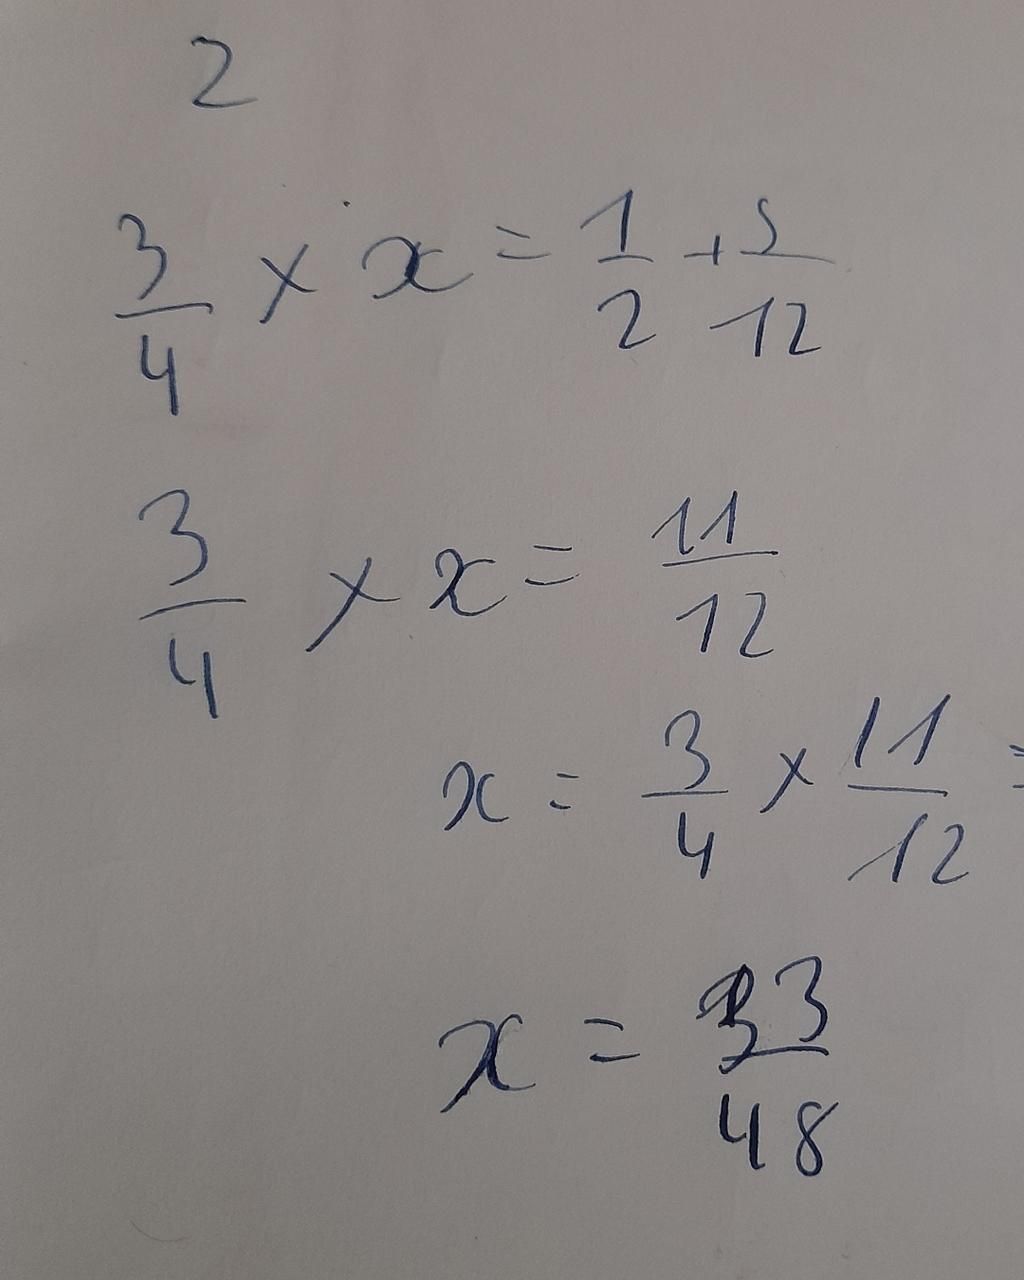 2
3/4 × x = 1/2 + 5/12
3/4 × x = 11/12
x = 3/4 × 11/12 =
x = 33/48